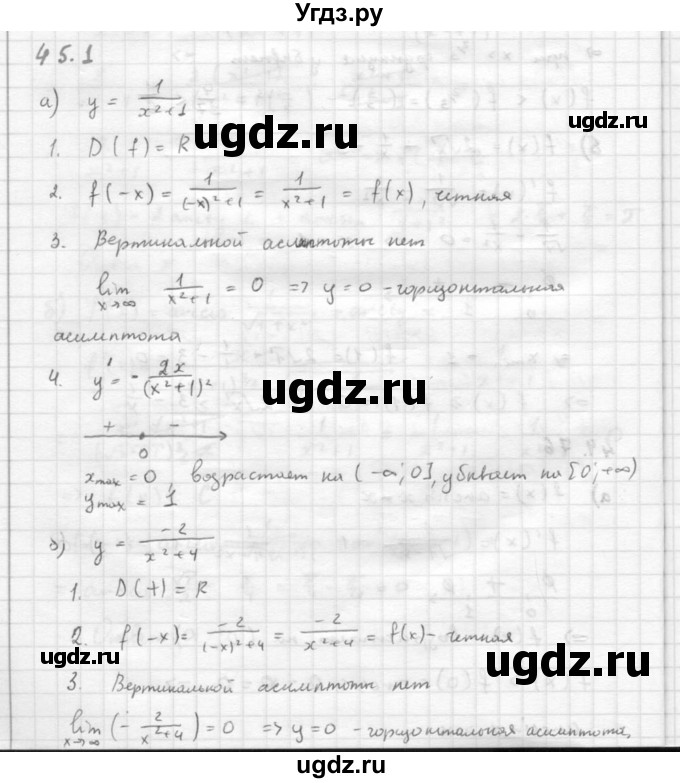 Угдз.ру
45.1
а) y = 1/(x²+1)
ugdz.ru
1. D(f) = R
2. f(-x) = 1/((-x)²+1) = 1/(x²+1) = f(x), четная
3. Вертикальной асимптоты нет
lim x→∞ 1/(x²+1) = 0 => y=0 - горизонтальная
асимптота
4. y' = - 2x/(x²+1)²
ugdz.ru
+ -
0
x max = 0, возрастает на (-∞; 0], убывает на [0; +∞)
y max = 1
б) y = -2/(x²+4)
1. D(f) = R
2. f(-x) = -2/((-x)²+4) = -2/(x²+4) = f(x) - четная
ugdz.ru ugdz.ru
3. Вертикальной асимптоты нет
lim x→∞ (- 2/(x²+4)) = 0 => y=0 - горизонтальная асимптота,
ugdz.ru